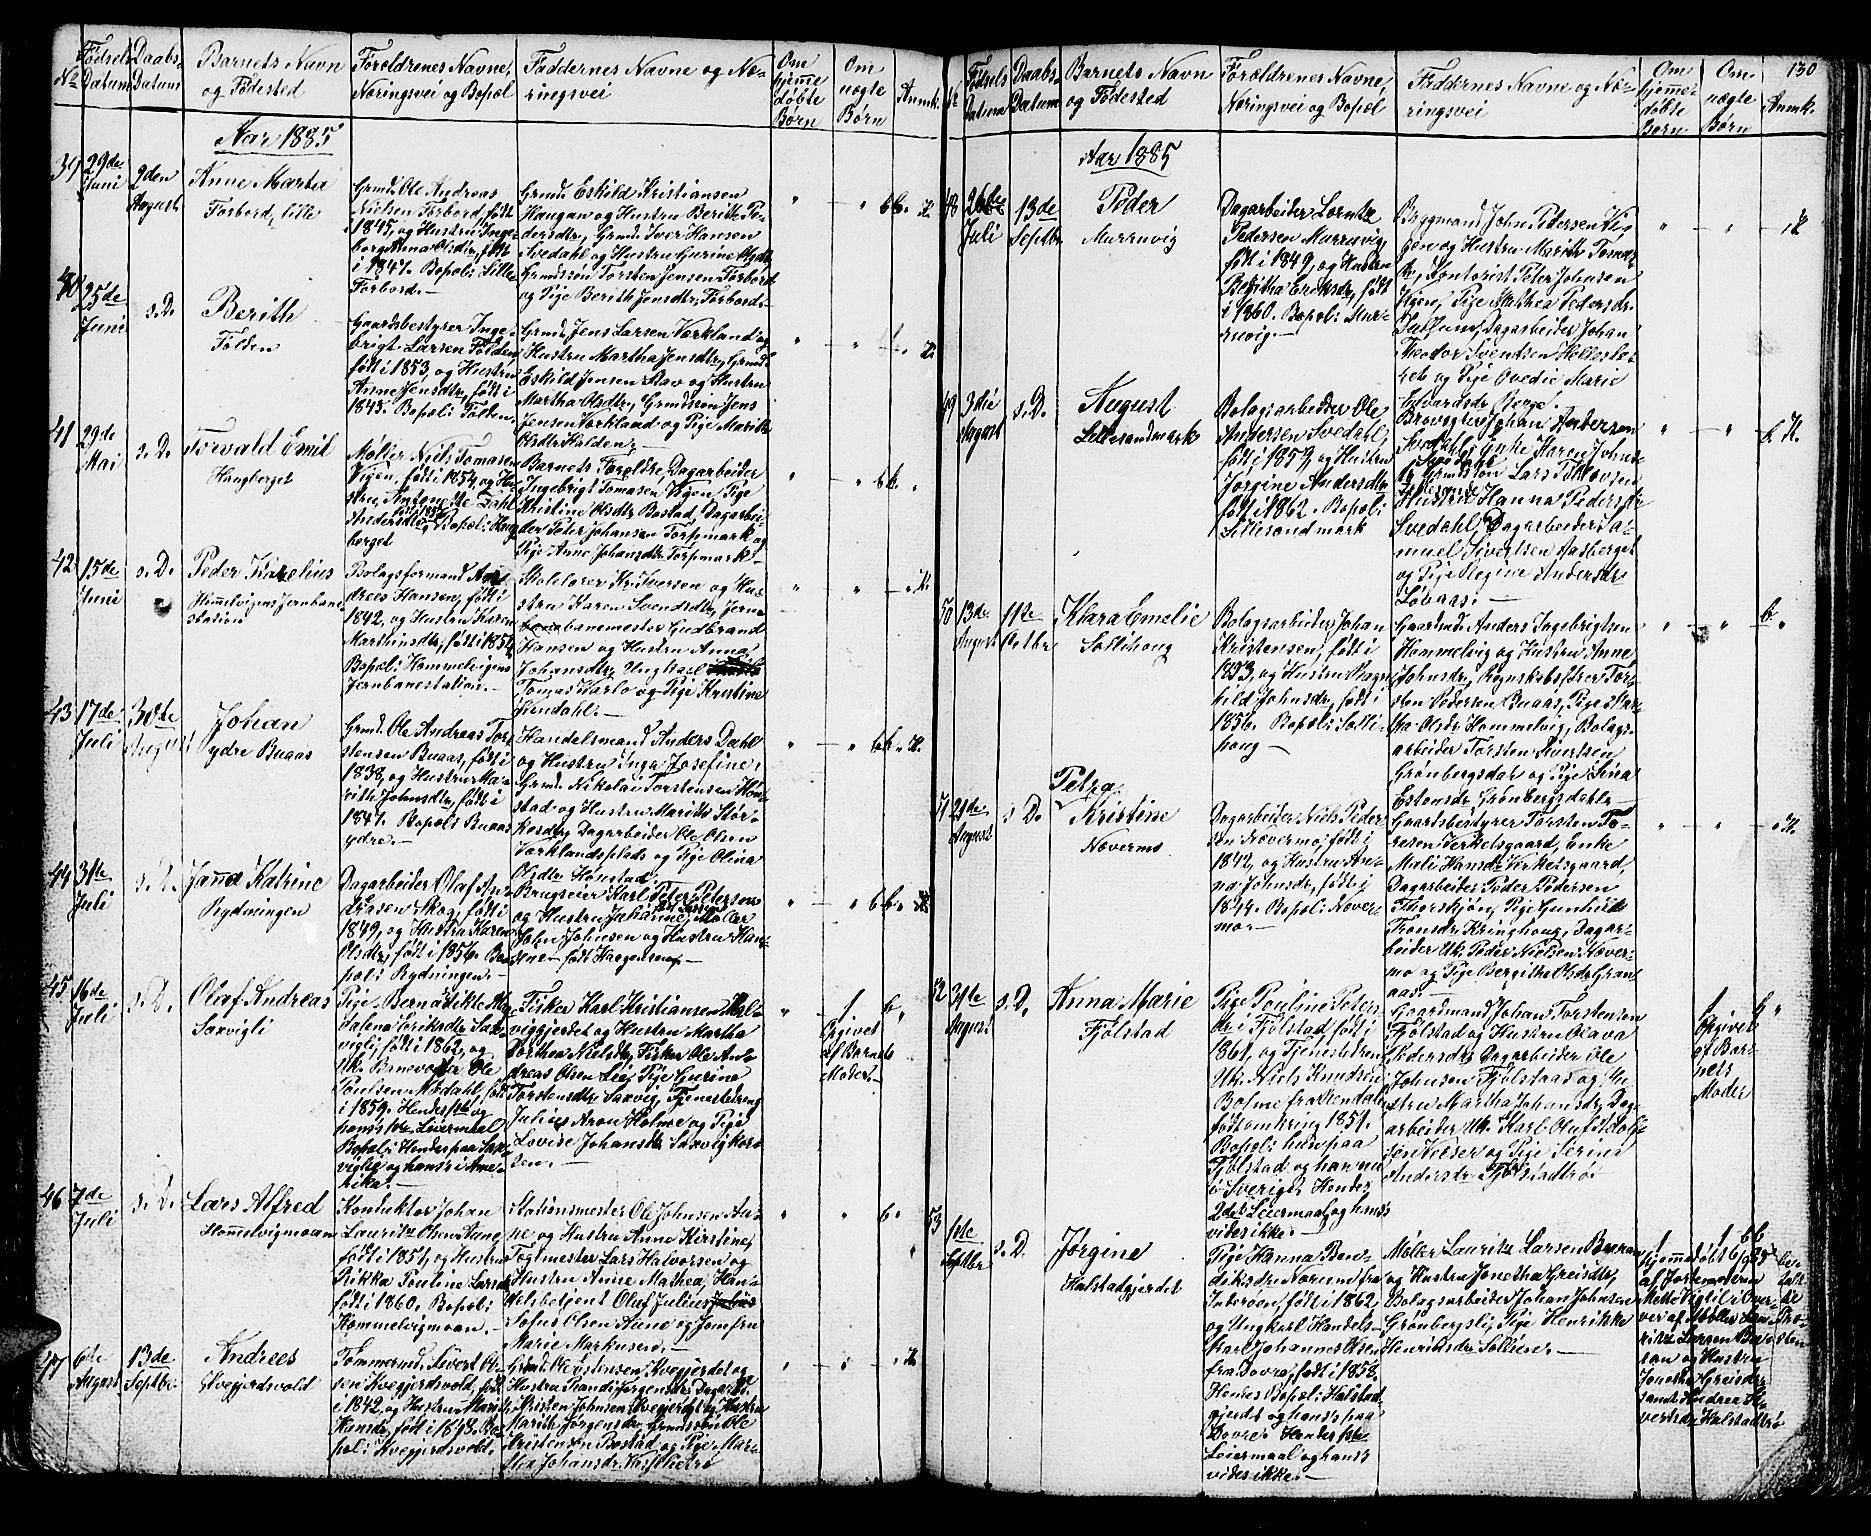 130
No
Fødsels Datum
Daabs Datum
Barnets Navn og Fødested
Forældrenes Navne, Næringsvei og Bopæl
Faddernes Navne og Næringsvei
Om hjemmedøbte Børn
Om uægte Børn
Anmk.
Aar 1885
39
29de Juni
9den August
Anne Marta
Forbord, lille
Grmd. Ole Andreas
Nielsen Forbord, født
i 1845, og Hustru Inge-
borg Anna Olsdtr, født
i 1847. Bopæl: Lille
Forbord.-
Grmd. Eskild Kristiansen
Haugan og Hustru Berith Pe-
dersdtr, Grmd. Iver Hansen
Svedahl og Hustru Gurine Olsdtr
Grmdssøn Torsten Jensen Forbord
og Pige Berith Jensdtr, Forbord.-
40
25de Juni
s. D.
Berith
Folden
Gaardsbestyrer Inge-
brigt Larsen Folden,
født i 1853, og Hustru
Anne Jensdtr, født i
1845. Bopæl: Folden.
Grmd. Jens Larsen Vorkland og
Hustru Martha Jensdtr, Grmd.
Eskild Jensen Aav og Hustru
Martha Olsdtr, Grmdssøn Jens
Jensen Vorkland og Pige Marith
Olsdtr Halden.-
41
29de Mai
s. D.
Torvald Emil
Haugberget
Møller Niels Tomasen
Vigen, født i 1854, og Hu-
stru Antonette Dahl
Andersdtr, Bopæl: Haug-
berget
Barnets Forældre, Dagarbeider
Ingebrigt Tomasen Vigen, Pige
Kristine Olsdtr Bostad, Dagarbei-
der Peter Johansen Torpmark og
Pige Anne Johansdtr Torpmark.-
42
15de Juni
s. D.
Peder Karelius
Hommelvigens Jernbane-
station
Bolagsformand An-
drees Hansen, født i
1842, og Hustru Karen
Marthinsdtr, født i 1854.
Bopæl: Hommelvigens
Jernbanestation.-
Skolelærer Kr. Iversen og Hu-
stru Karen Svendsdtr, Jern-
banemester Gudbrand
Hansen og Hustru Anna
Johansdtr, Ungkarl
Tomas Karlo og Pige Kristine
43
17de Juli
30de August
Johan
ydre Buaas
Grmd. Ole Andreas Tor-
stensen Buaas, født i
1838, og Hustru Ma-
rith Johnsdtr, født i
1847. Bopæl: Buaas
ydre.-
Handelsmand Anders Dahl
og Hustru Inga Josefine,
Grmd. Nikolai Torstensen Høn-
stad og Hustru Marith Stor-
Dagarbeider Ole Olsen
Vorklandsplads og Pige Olina
Olsdtr Hønstad.
44
31te Juli
s. D.
Janna Katrine
Rydningen
Dagarbeider Olaf An-
dreasen Skog, født i
1849, og Hustru Karen
Olsdtr, født i 1856. Bo-
pæl: Rydningen.-
Brugseier Karl Peter Petersen
og Hustru Johanne, Møller
John Johnsen og Hustru Han-
sine født Haagensen.-
45
16de Juli
s. D.
Olaf Andreas
Saxvigli
Pige Bernadikte Mag-
dalena Eriksdtr Sax-
vigli, født i 1862, og
Uk. Brovogter Ole
Poulsen Mædahl, født
i 1859. Hendes 1ste og
hans 1ste Leiermaal
Bopæl: Hendes paa Sax-
viglie og hans i Ame-
rika.-
Fisker Karl Kristiansen Mal-
viggjerdet og Hustru Martha
Dorthea Nielsdtr, Fisker Ole An-
dreas Olsen Lei, Pige Gurine
Torstensdtr Saxvig, Tjenestedreng
Julius Aron Holme og Pige
Lovise Johansdtr Saxvigkor-
sen.-
1 Opgivet af Barnets Moder.-
46
7de Juli
s. D.
Lars Alfred
Hommelvigmoan
Konduktør Johan
Lauritz Olsen Aune,
født i 1851, og Hustru
Rikka Pouline Larsdtr
født i 1860. Bopæl:
Hommelvigmoan.-
Stationsmester Ole Johnsen Au-
ne og Hustru Anne Kirstine,
Togmester Lars Halvorsen og
Hustru Anne Mathea, Han-
delsbetjent Oluf Julius
Sofus Olsen Aune og Jomfru
Marie Markusen.-
47
6te August
13de Septbr.
Andreas
Kvegjerdsvold
Tømmermd. Sivert Ol-
sen Kvegjerdsvold, født
i 1842, og Hustru Marith
Hansdtr, født i 1843. Bo-
pæl: Kvegjerdsvold.
Grmd. Ole Estensen Kvegjerdet og
Hustru Randi Jørgensdtr, Dagarb.
Kristen Johnsen Kvegjerdet og Hustru
Marith Jørgensdtr, Grmdssøn Ole
Kristensen Bostad og Pige Mar-
tha Johansdtr
No
Fødsels Datum
Daabs Datum
Barnets Navn og Fødested
Forældrenes Navne, Næringsvei og Bopæl
Faddernes Navne og Næringsvei
Om hjemmedøbte Børn
Om uægte Børn
Anmk.
Aar 1885
48
26de Juli
13de Septbr
Peder
Muruvig
Dagarbeider Lorntz
Pedersen Muruvig,
født i 1849, og Hustru
Beritha Eriksdtr, født
i 1860. Bopæl: Mur-
uvig.-
Byggmand John Pedersen Vi-
gen og Hustru Marith Tomas-
dtr, Kontorist Peter Johnsen
Vigen, Pige Mathea Pedersdtr
Dagarbeider Johan
Theodor Svendsen Hellesbe-
get og Pige Ovedie Marie
Edvardsdtr Berge.
49
3die August
s. D.
August
Lillesandmark
Bolagsarbeider Ole
Andersen Svedahl,
født i 1857, og Hustru
Jørgine Andersdtr
født i 1862. Bopæl:
Lillesandmark
Brovogter Johan Andersen
Svedahl, Enke Karen Johns-
Grmdssøn Lars Tollovsen
Hustru Hanna Pedersdtr
Svedahl, Dagarbeider Sa-
muel Sivertsen Aasberget
og Pige Regine Andersdtr
Løvaas.-
50
13de August
11te Octbr
Klara Emelie
Sollihoug
Bolagsarbeider Johan
Kristensen, født i
1853, og Hustru Ragn-
hild Johnsdtr, født i
1856. Bopæl: Solli-
houg.-
Gaardmd. Anders Ingebrigtsen
Hommelvig og Hustru Anne
Johnsdtr, Regnskabsfører Tor-
sten Pedersen Buaas, Pige Mar-
tha Olsdtr Hommelvig, Bolags-
arbeider Torsten Sivertsen
Grønbergsdal og Pige Lina
Estensdtr Grønbergsdahl.-
51
21de August
s. D.
Petra Kristine
Nævermo
Dagarbeider Niels Peder-
sen Nævermo, født i
1842, og Hustru An-
na Johnsdtr, født i
1844. Bopæl: Næver-
mo.-
Gaardsbestyrer Torsten To-
resen Verketsgaard, Enke
Mali Hansdtr Verketsgaard,
Dagarbeider Peder Pedersen
Pige Gunhild
Tronsdtr Kringhoug, Dagar-
beider Uk. Peder Nielsen Næver-
mo og Pige Bergithe Olsdtr Gran-
aas.-
52
31te August
s. D.
Anna Marie
Fjølstad
Pige Pauline Peters-
dtr i Fjølstad, født i
1861, og Tjenestedreng
Uk. Niels Knudsen
Bolme fra Rendalen
født omkring 1851.
Bopæl: hun paa
Fjølstad og han nu
i Sverige. Hendes
2det Leiermaal og hans
vides ikke.-
Gaardmand Johan Torstensen
Fjølstad og Hustru Olava
Pedersdtr, Dagarbeider Ole
Johnsen Fjølstaas og Hu-
stru Martha Johansdtr, Dag-
arbeider Uk. Karl Oluf Adolf-
sen Velser og Pige Serina
Andersdtr Fjølstadtrø.-
1 Opgivet af Barnets Moder
53
1ste Septbr
s. D.
Jørgine
Halstadgjerdet
Pige Hanna Ben-
dikisdtr Norum fra
Inderøen, født i 1862,
og Ungkarl Handels-
Karl Johannes Olsen
fra Dovre, født i 1858.
Hendes Bopæl: Halstad-
gjerdet og hans paa
Dovre. Hendes 1ste
Leiermaal og hans
vides ikke.-
Møller Lauritz Larsen Bakkan
og Hustru Jonetha Greisdtr,
Bolagsarbeider Johan Johnsen
Grønbergsli, Pige Henrikke
Henriksdtr Sollien.-
1 Hjemmedøbt 6/9 85
af Jordemoderen
Mette Vigtil i Over-
vær af Møller Lau-
ritz Larsen Bak-
kan og Hustru
Jonetha Greisdtr
samt Andrea
Halstadtrø